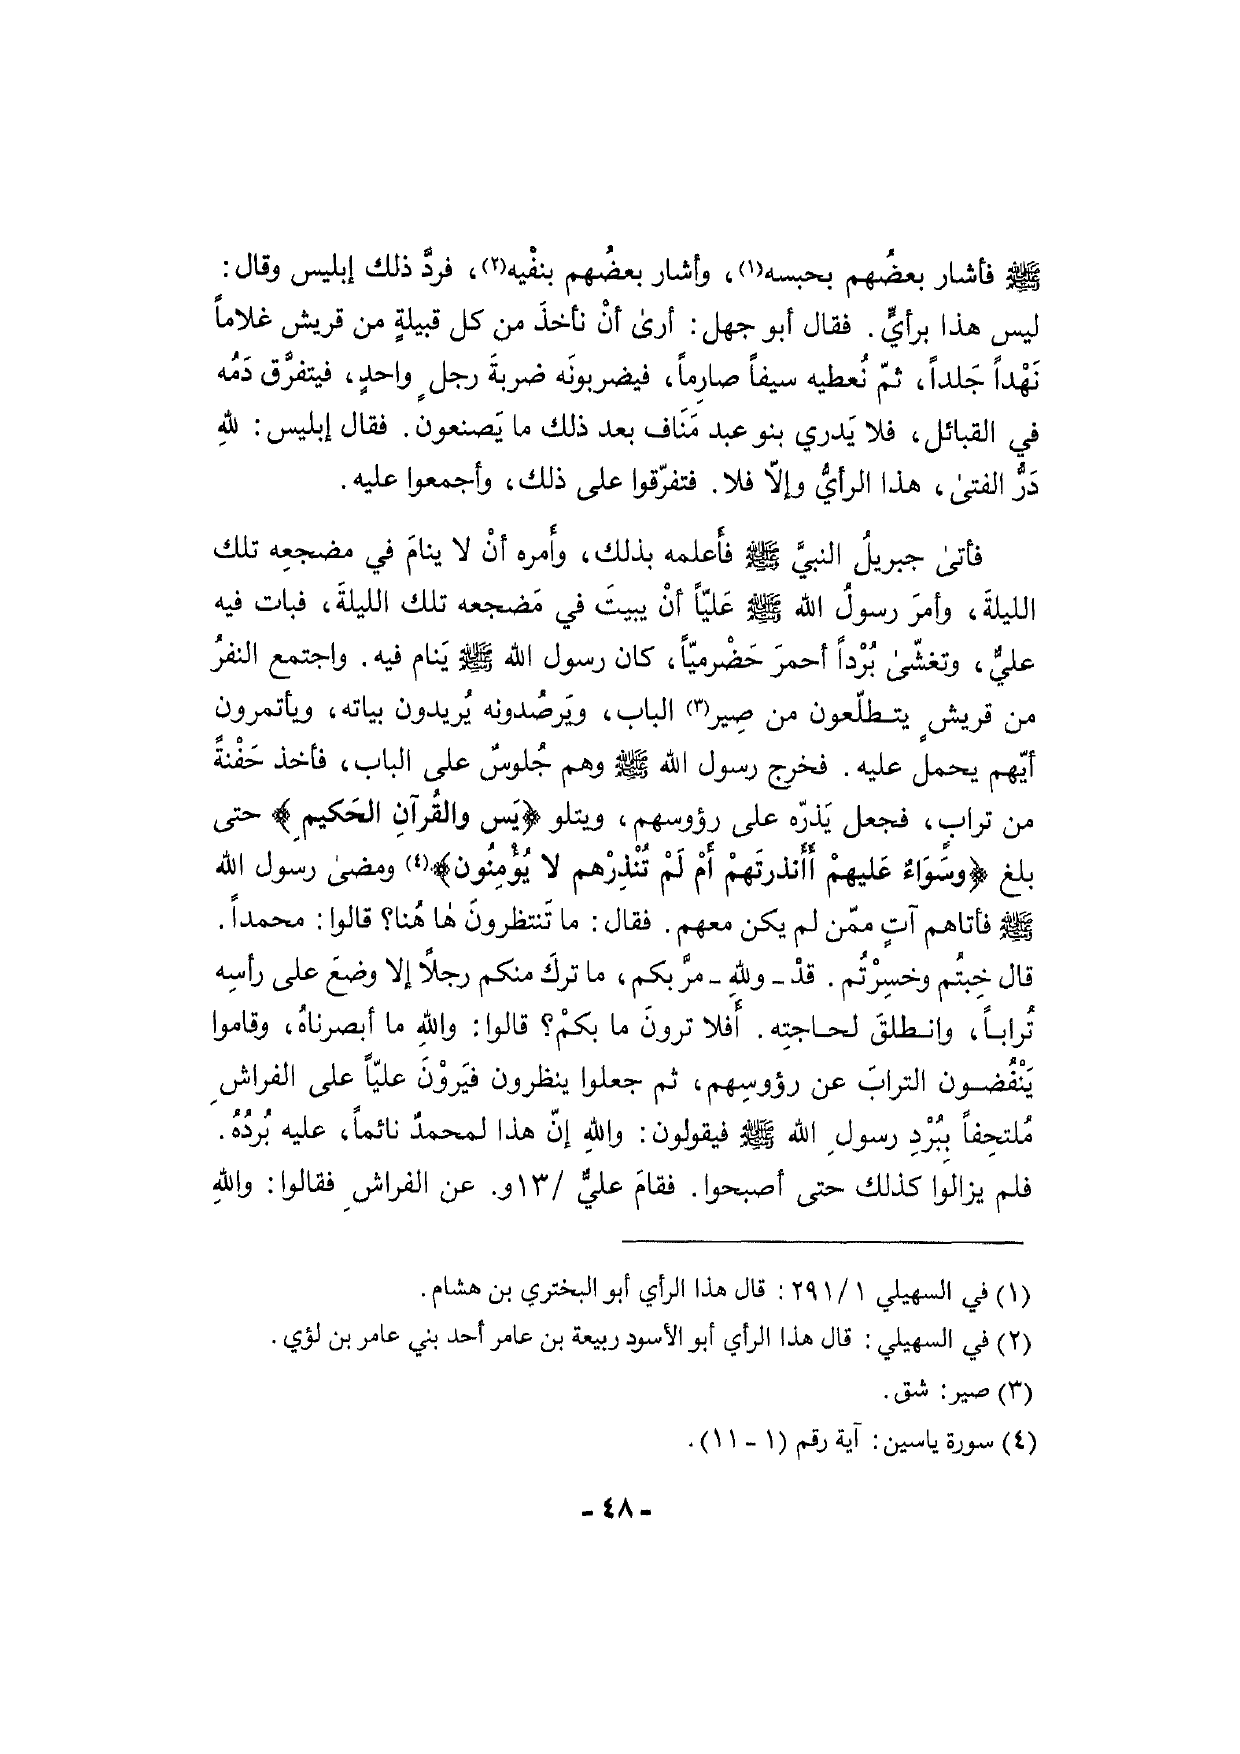 ﷺ فأشار بعضُهم بحبسه(١)، وأشار بعضُهم بنفْيه(٢)، فردَّ ذلك إبليس وقال:
ليس هذا برأيٍّ. فقال أبو جهل: أرىٰ أنْ نأخذَ من كل قبيلةٍ من قريش غلاماً
نَهْداً جَلداً، ثمّ نُعطيه سيفاً صارِماً، فيضربونَه ضربةَ رجلٍ واحدٍ، فيتفرَّق دَمُه
في القبائل، فلا يَدري بنو عبد مَنَاف بعد ذلك ما يَصنعون. فقال إبليس: للهِ
دَرُّ الفتىٰ، هذا الرأيُّ وإلّا فلا. فتفرّقوا على ذلك، وأجمعوا عليه.
فأتىٰ جبريلُ النبيَّ ﷺ فأَعلمه بذلك، وأَمره أنْ لا ينامَ في مضجعِه تلك
الليلةَ، وأمرَ رسولُ الله ﷺ عَليّاً أنْ يبيتَ في مَضجعه تلك الليلةَ، فبات فيه
عليٌّ، وتغشّىٰ بُرْداً أحمرَ حَضْرميّاً، كان رسول الله ﷺ يَنام فيه. واجتمع النفرُ
من قريشٍ يتطلّعون من صِير(٣) الباب، ويَرصُدونه يُريدون بياته، ويأتمرون
أيّهم يحمل عليه. فخرج رسول الله ﷺ وهم جُلوسٌ على الباب، فأخذ حَفْنةً
من ترابٍ، فجعل يَذرّه على رؤوسهم، ويتلو ﴿يَس والقُرآنِ الحَكيمِ﴾ حتى
بلغ ﴿وسَوَاءٌ عَليهمْ أَأَنذرتَهمْ أَمْ لَمْ تُنْذِرْهم لا يُؤْمِنُون﴾(٤) ومضىٰ رسول الله
ﷺ فأتاهم آتٍ ممّن لم يكن معهم. فقال: ما تَنتظرونَ هٰا هُنا؟ قالوا: محمداً.
قال خِبتُم وخسِرْتُم. قدْ - واللهِ - مرَّ بكم، ما تركَ منكم رجلًا إلا وضعَ على رأسِه
تُراباً، وانطلقَ لحاجتِه. أَفلا ترونَ ما بكمْ؟ قالوا: واللهِ ما أبصرناهُ، وقاموا
يَنْفُضون الترابَ عن رؤوسِهم، ثم جعلوا ينظرون فيَروْنَ عليّاً على الفراشِ
مُلتحِفاً بِبُرْدِ رسولِ الله ﷺ فيقولون: واللهِ إنّ هذا لمحمدٌ نائماً، عليه بُردُهُ.
فلم يزالوا كذلك حتى أصبحوا. فقامَ عليٌّ /١٣و. عن الفراشِ فقالوا: واللهِ
(١) في السهيلي ١/ ٢٩١: قال هذا الرأي أبو البختري بن هشام.
(٢) في السهيلي: قال هذا الرأي أبو الأسود ربيعة بن عامر أحد بني عامر بن لؤي.
(٣) صير: شق.
(٤) سورة ياسين: آية رقم (١ - ١١).
- ٤٨ -